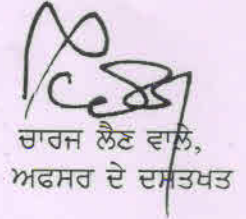 ਚਾਰਜ ਲੈਣ ਵਾਲੇ,
ਅਫਸਰ ਦੇ ਦਸਤਖਤ